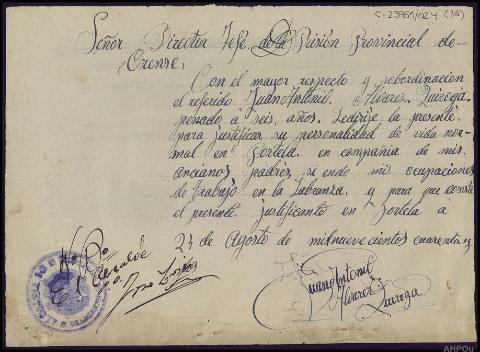 C-23961/024 (26)
Señor Director Jefe de la Prisión Provincial de
Orense,
Con el mayor respecto y sebordinacion
el referido Juan Antonio. Alvarez Quiroga.
penado á seis, años. Ledirije la presente.
para justificar su personalidad de vida nor-
mal en Portela. en compañia de mis.
ancianos padrez, si endo mis ocupaciones
de trabajo en la Labranza. y para que conste
el presente justificante en Portela á
23 de Agosto de milnuevecientos cuarenta y
Vº Bº
El Alcalde
P.O.
Juan Antonio
Alvarez Quiroga
AHPOu